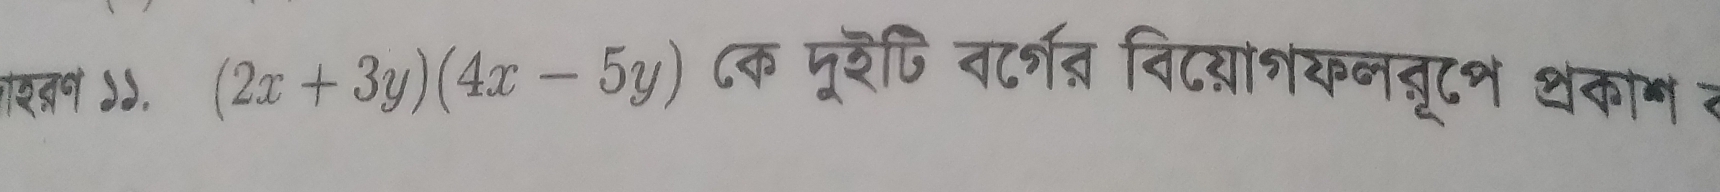 ১১. (2x + 3y)(4x - 5y) কে দুইটি বর্গের বিয়োগফলরূপে প্রকাশ